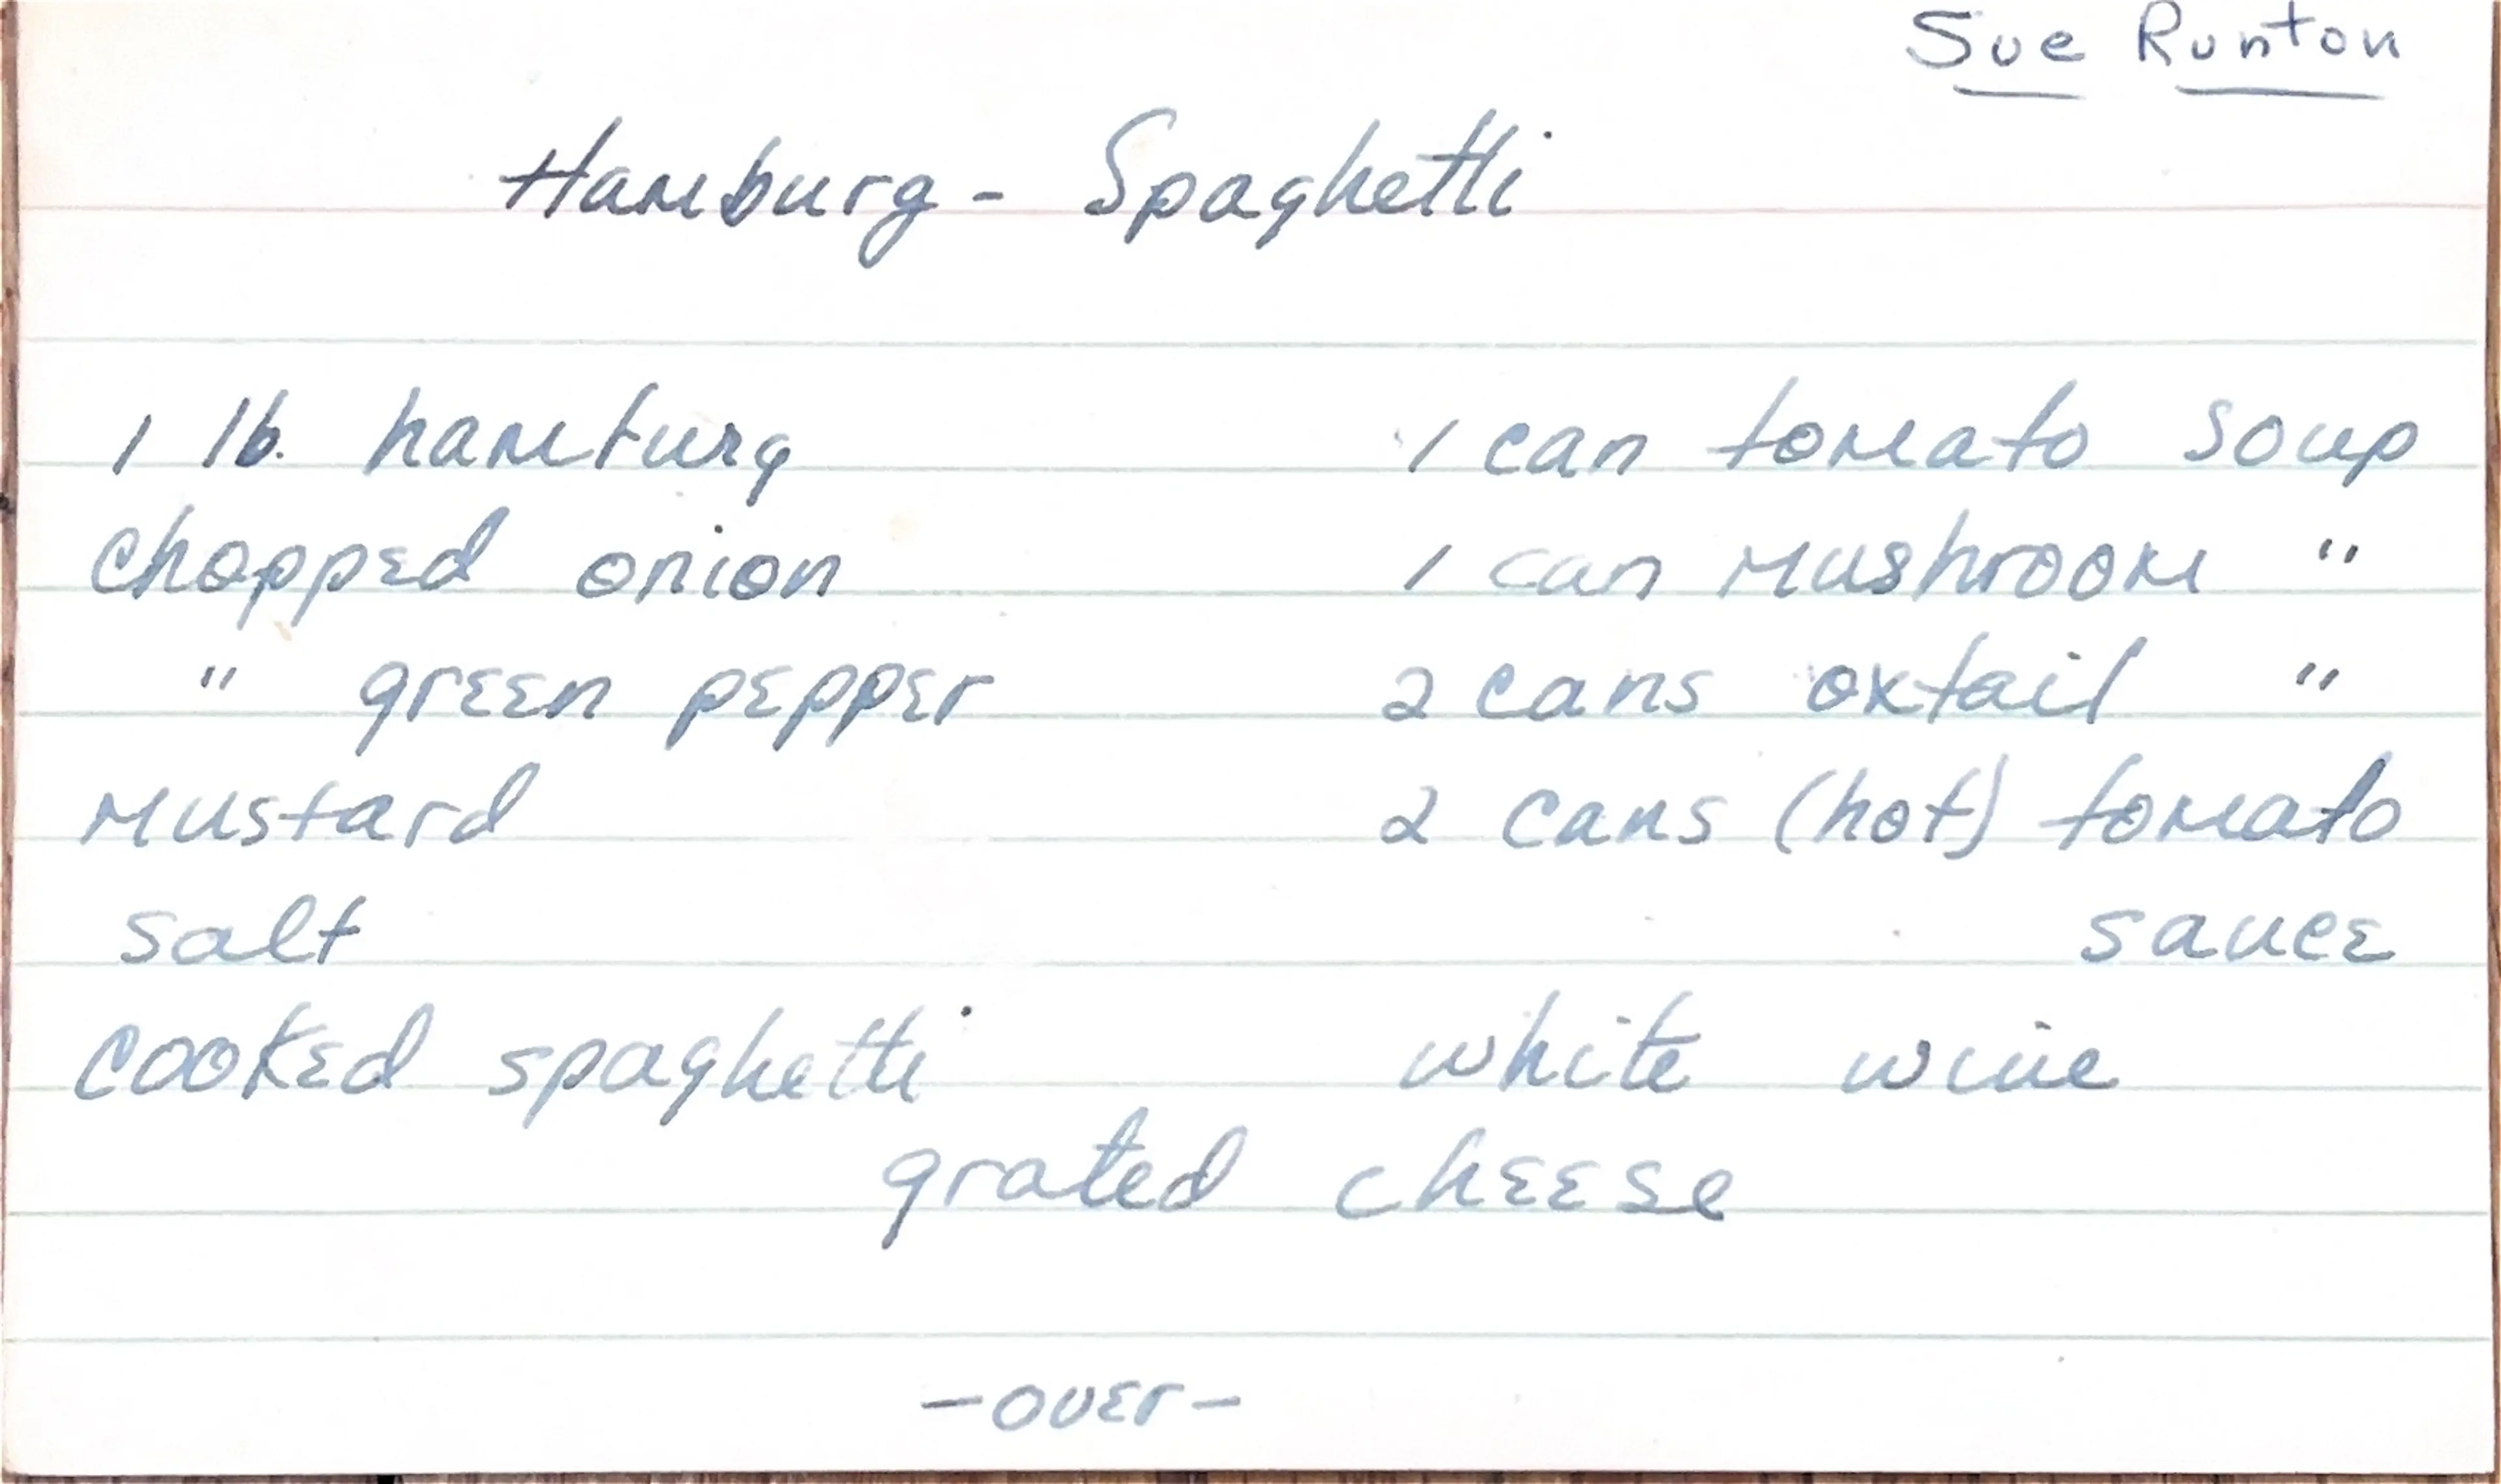 Sue Runton
Hamburg - Spaghetti
1 lb. hamburg 1 can tomato soup
chopped onion 1 can mushroom "
" green pepper 2 cans oxtail "
mustard 2 cans (hot) tomato
salt sauce
cooked spaghetti white wine
grated cheese
- over -